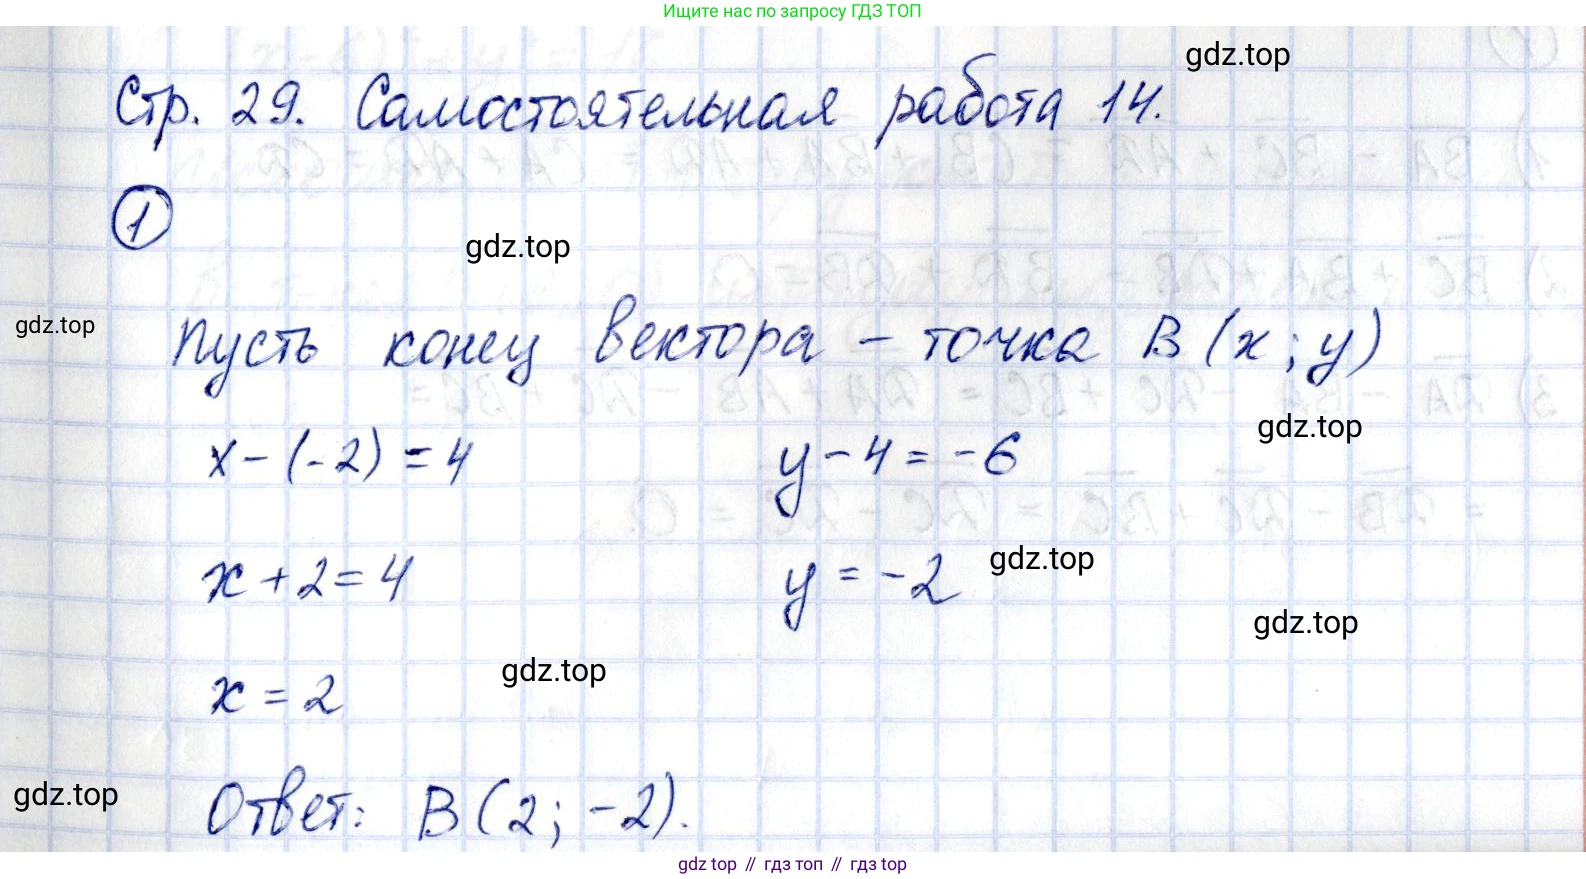 Ищите нас по запросу ГДЗ ТОП
gdz.top
Стр. 29. Самостоятельная работа 14.
1
gdz.top
gdz.top
Пусть конец вектора – точка B (x ; y)
gdz.top
x – (-2) = 4 y – 4 = -6
x + 2 = 4 y = -2
gdz.top
gdz.top
gdz.top
x = 2
gdz.top
Ответ: B (2 ; -2).
gdz top // гдз топ // гдз top